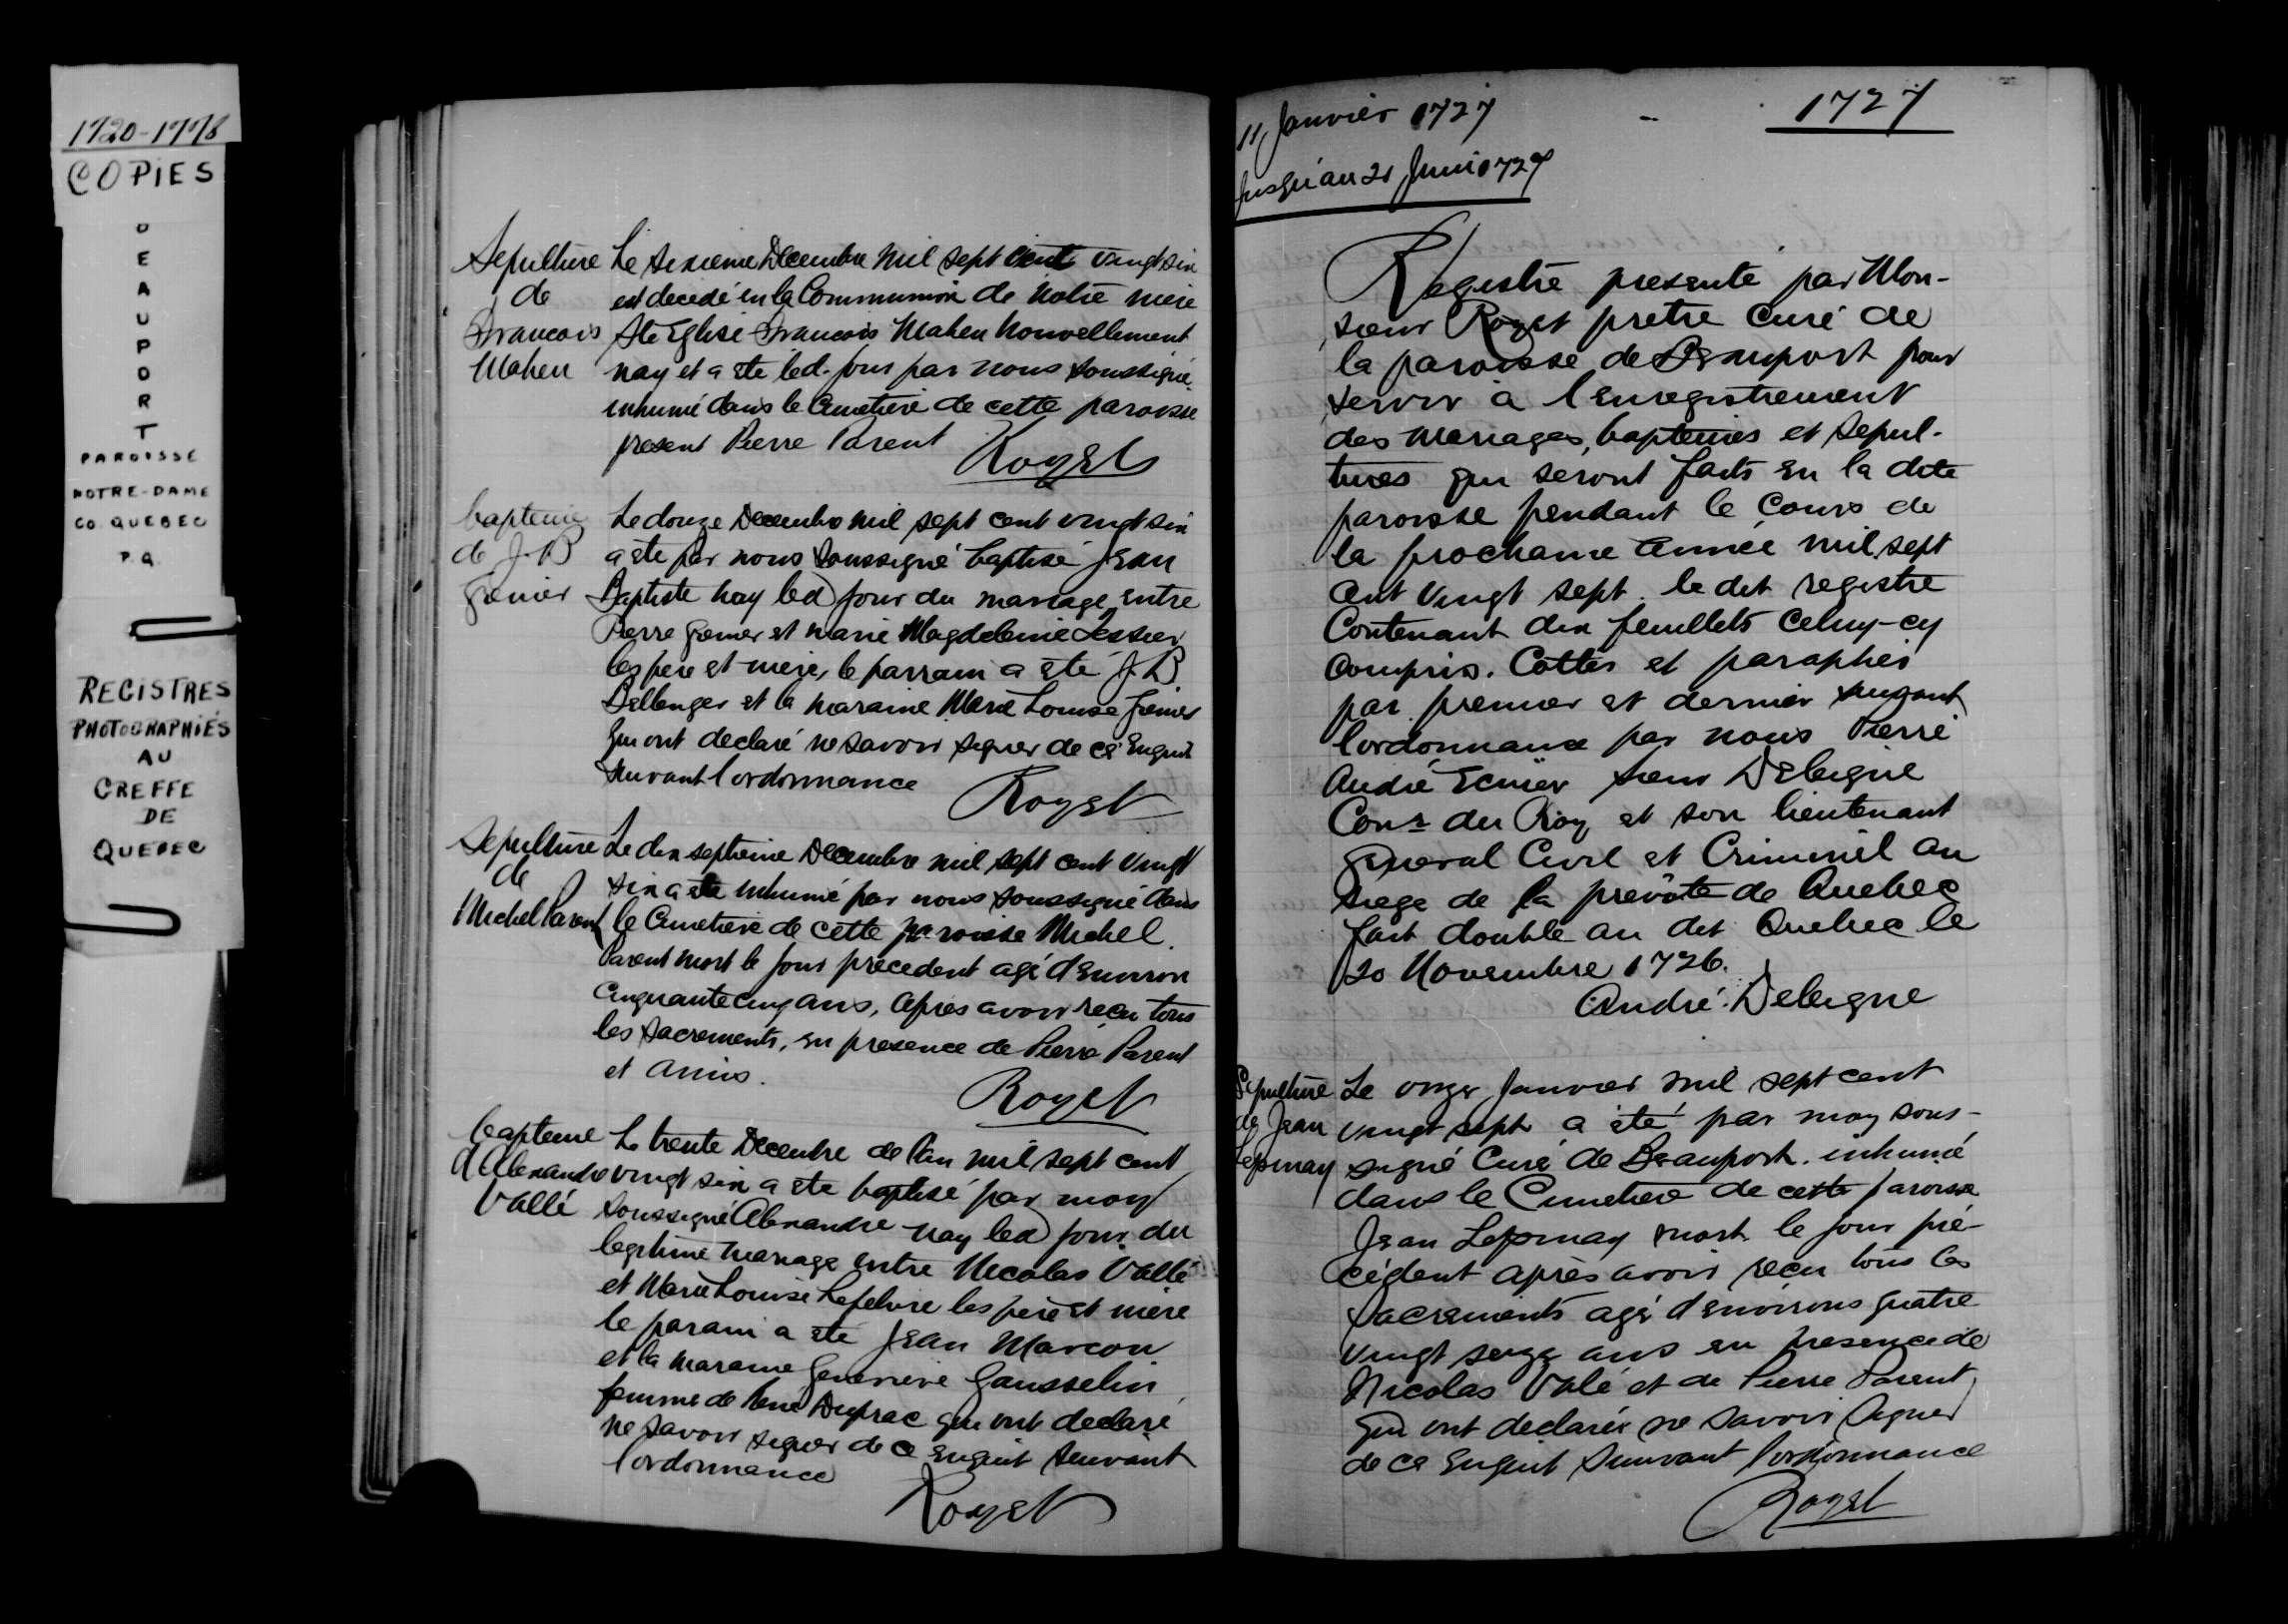 1720-1778
COPIES
BEAUPORT
PAROISSE
NOTRE-DAME
CO. QUEBEC
P.Q.
REGISTRES
PHOTOGRAPHIÉS
AU
GREFFE
DE
QUEBEC
Sepulture
de
Francois
Maheu
Le sixieme Decembre mil sept cent vingt six
est decedé en la Communion de notre mere
Ste Eglise Francois Maheu nouvellement
nay et a ete led. jour par nous soussigné
inhumé dans le Cimetiere de cette paroisse
present Pierre Parent
Royet
bapteme
de J-B
Grenier
Le douze Decembre mil sept cent vingt six
a ete par nous soussigné baptisé Jean
Baptiste nay led jour du mariage entre
Pierre Grenier et marie Magdeleine Lessier
les pere et mere, le parrain a ete J-B
Bellenger et la maraine Marie Louise Grenier
qui ont declaré ne savoir signer de ce Enquit
suivant l'ordonnance
Royet
Sepulture
de
Michel Parent
Le dix septieme Decembre mil sept cent vingt
six a ete inhumé par nous soussigné dans
le Cimetiere de cette paroisse Michel
Parent mort le jour precedent agé d'environ
cinquante cinq ans, apres avoir reçu tous
les sacrements, en presence de Pierre Parent
et amis.
Royet
bapteme
d'Alexandre
Vallé
Le trente Decembre de l'an mil sept cent
vingt six a ete baptisé par moy
soussigné Alexandre nay led jour du
legitime mariage entre Nicolas Vallé
et Marie Louise Lefebvre les pere et mere
le parain a ete Jean Marcou
et la maraine Genevieve Gausselin
femme de René Duprac qui ont declaré
ne savoir signer de ce Enquit suivant
l'ordonnance
Royet
11 Janvier 1727
Jusqu'au 21 Juin 1727
1727
Registre presenté par Mon-
sieur Royet pretre Curé de
la paroisse de Beauport pour
servir a l'Enregistrement
des mariages, baptemes et sepul-
tures qui seront faits en la dite
paroisse pendant le Cours de
la prochaine année mil sept
cent vingt sept. le dit registre
Contenant dix feuillets celuy-cy
compris. Cottés et paraphés
par premier et dernier suyvant
l'ordonnance par nous Pierre
André Ecuier sieur Deleigne
Conr du Roy et son lieutenant
general Civil et Criminel au
siege de la prevôté de Quebec
fait double au dit Quebec le
20 Novembre 1726.
André Deleigne
Sepulture
de Jean
Lepinay
Le onze Janvier mil sept cent
vingt sept a eté par moy sous-
signé Curé de Beauport. inhumé
dans le Cimetiere de cette paroisse
Jean Lepinay mort le jour pré-
cédent après avoir reçu tous les
sacrements agé d'environs quatre
vingt seize ans en presence de
Nicolas Valé et de Pierre Parent
qui ont declarés ne savoir signer
de ce Enquit suivant l'ordonnance
Royet